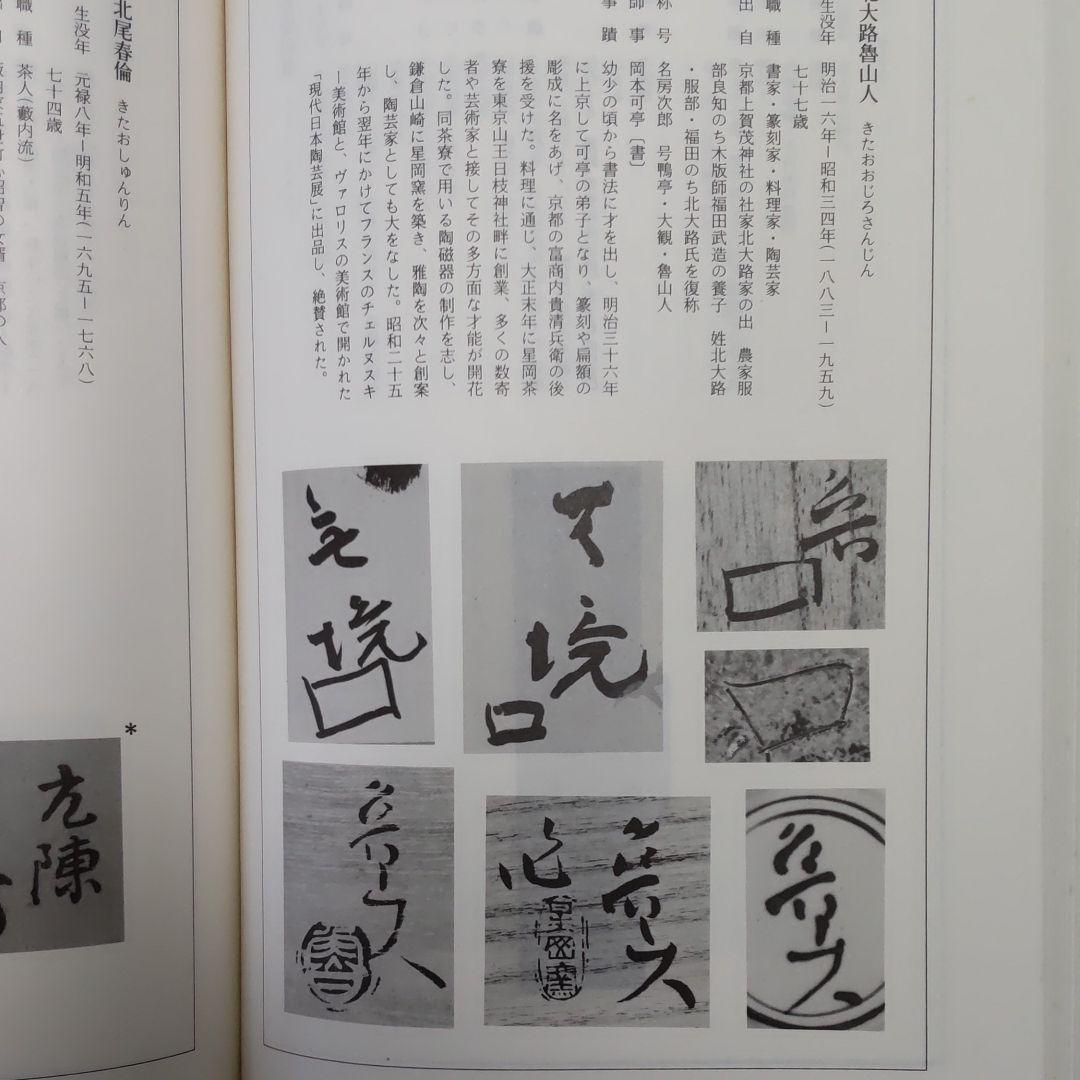 大路魯山人　きたおおじろさんじん
生没年　明治一六年ー昭和三四年(一八八三ー一九五九)
七十七歳
職　種　書家・篆刻家・料理家・陶芸家
出　自　京都上賀茂神社の社家北大路家の出　農家服
部良知のち木版師福田武造の養子　姓北大路
・服部・福田のち北大路氏を復称
称　号　名房次郎　号鴨亭・大観・魯山人
師　事　岡本可亭〔書〕
事　蹟　幼少の頃から書法に才を出し、明治三十六年
に上京して可亭の弟子となり、篆刻や扁額の
彫成に名をあげ、京都の富商内貴清兵衛の後
援を受けた。料理に通じ、大正末年に星岡茶
寮を東京山王日枝神社畔に創業、多くの数寄
者や芸術家と接してその多方面な才能が開花
した。同茶寮で用いる陶磁器の制作を志し、
鎌倉山崎に星岡窯を築き、雅陶を次々と創案
し、陶芸家としても大をなした。昭和二十五
年から翌年にかけてフランスのチェルヌスキ
ー美術館と、ヴァロリスの美術館で開かれた
「現代日本陶芸展」に出品し、絶賛された。
魯山人
星岡窯
北尾春倫　きたおしゅんりん
生没年　元禄八年ー明和五年(一六九五ー一七六八)
七十四歳
職　種　茶人(藪内流)
*